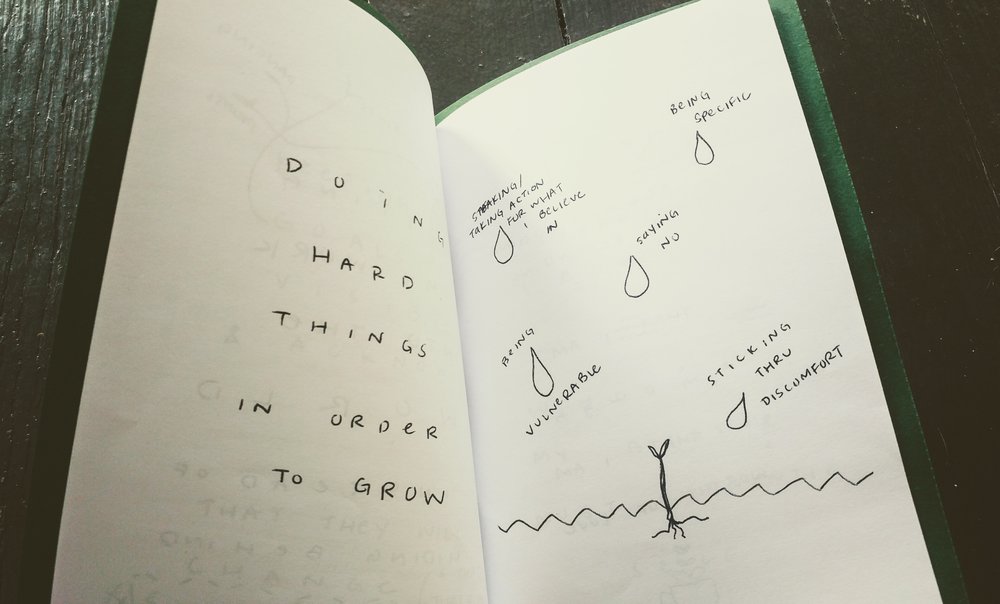 DOiNG
HARD
THINGS
IN ORDeR
To GROW
BeiNG
SPeCiFiC
SPEAKING/
TAKING ACTION
FOR WHAT
I BELIEVE
IN
SAYiNG
NO
BEiNG
VULNeRABLe
STICKING
THRU
DISCOMFORT